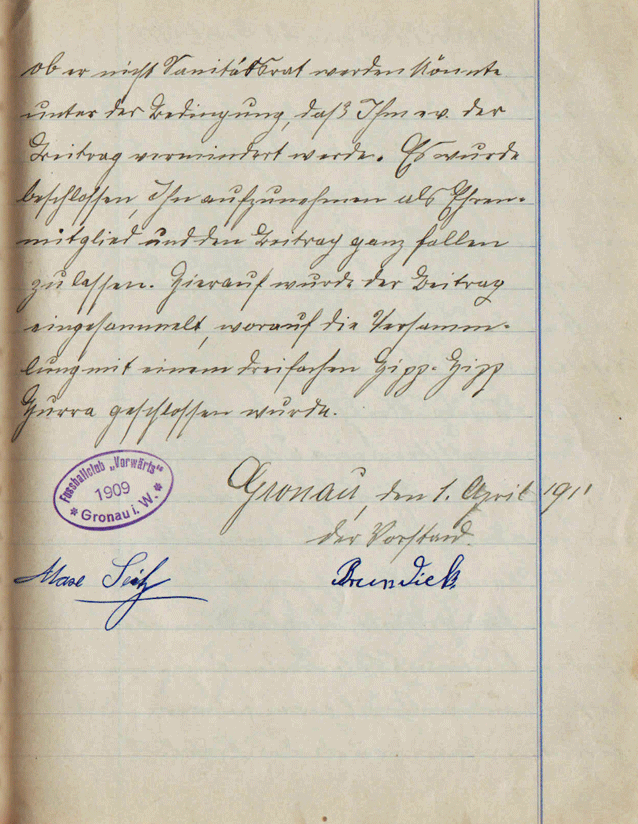 ob er nicht Sanitätsrat werden könnte
unter der Bedingung, daß Ihm ev. der
Beitrag vermindert werde. Es wurde
beschlossen, Ihn aufzunehmen als Ehren-
mitglied und den Beitrag ganz fallen
zu lassen. Hierauf wurde der Beitrag
eingesammelt, worauf die Versamm-
lung mit einem dreifachen Hipp-Hipp
Hurra geschlossen wurde.
Fussballclub „Vorwärts“
1909
* Gronau i. W. *
Gronau, den 1. April 1911
der Vorstand.
Seitz
Brundiek